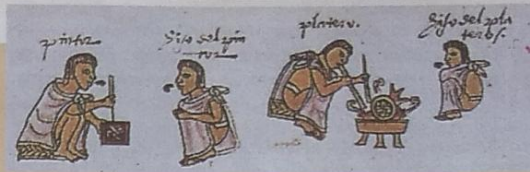 pintor
hijo del pin
tor
platero.
hijo del pla
tero.